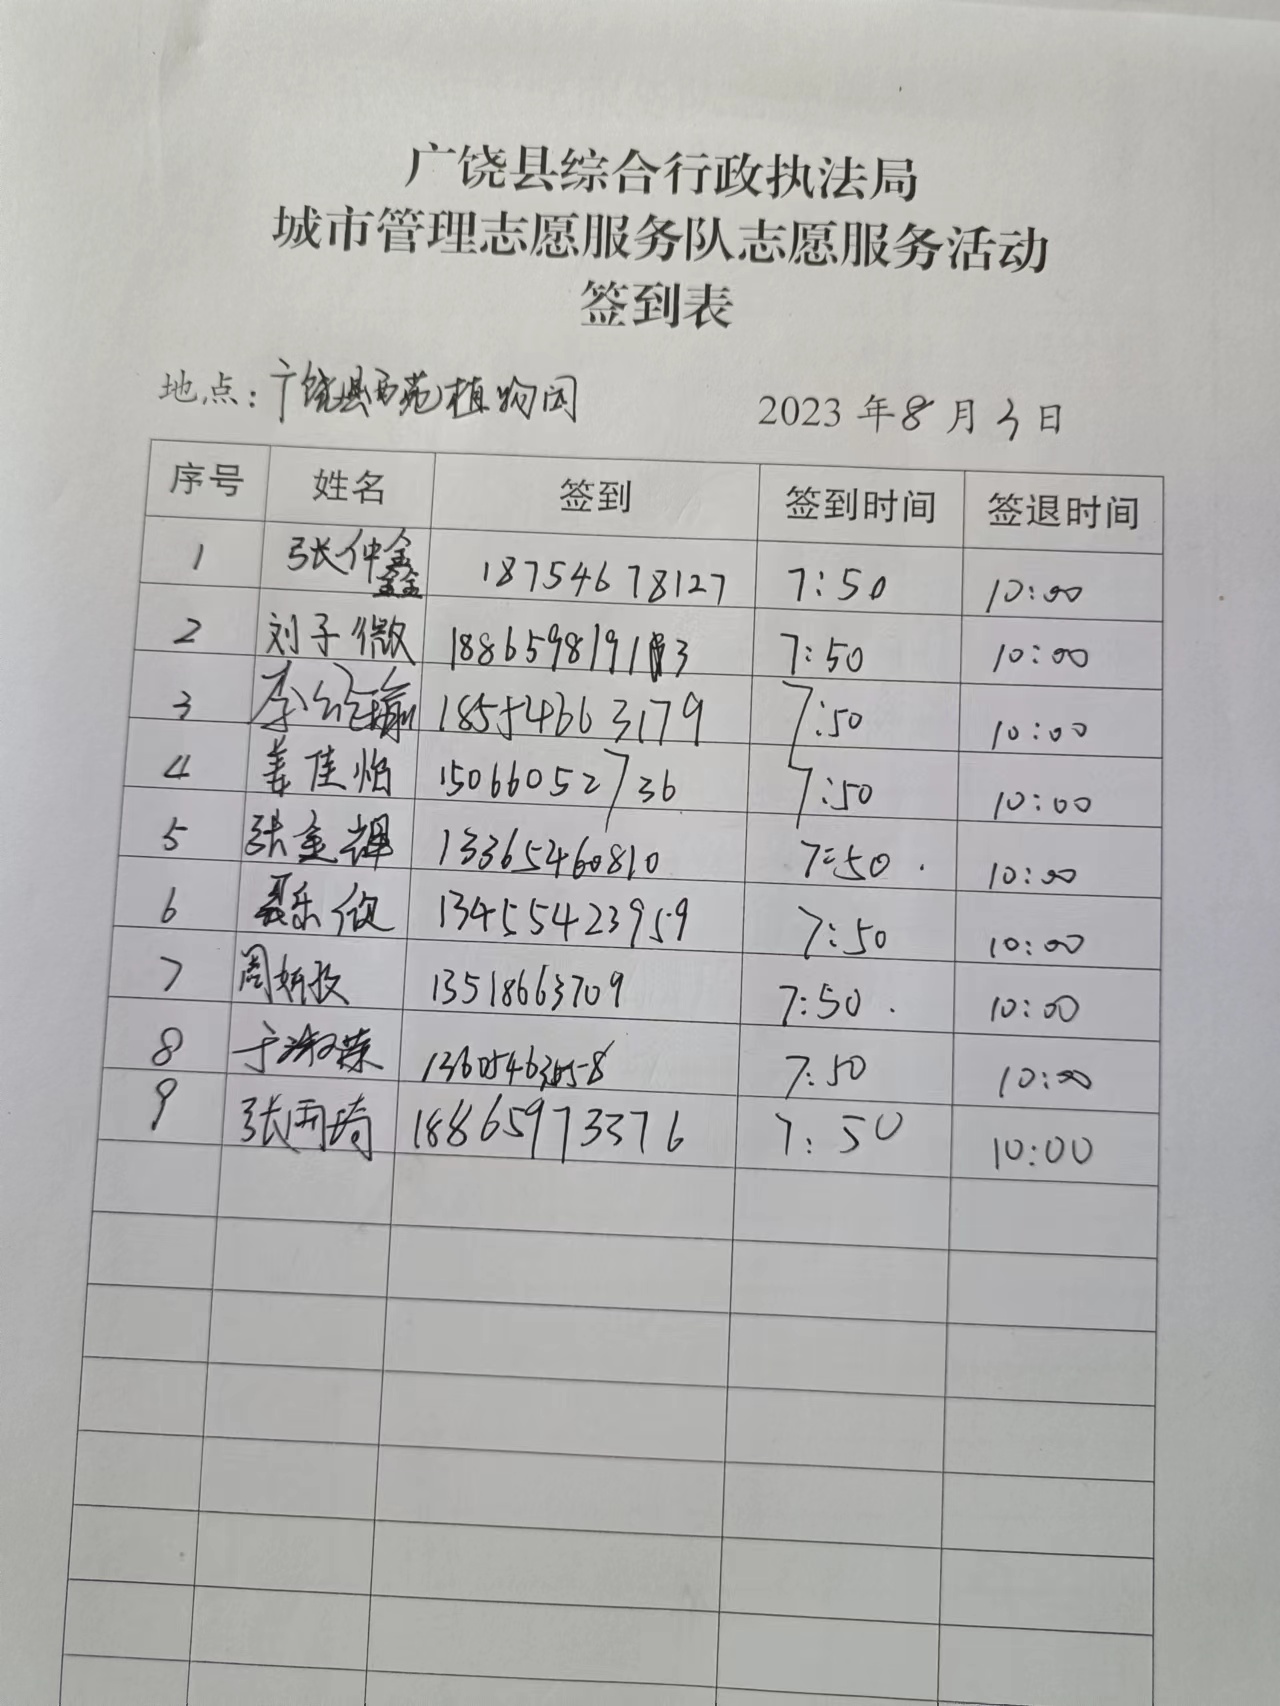 广饶县综合行政执法局
城市管理志愿服务队志愿服务活动
签到表
地点：广饶县西苑植物园 2023年8月3日
序号 姓名 签到 签到时间 签退时间
1 张仲鑫 18754678127 7:50 10:00
2 刘子微 18865981913 7:50 10:00
3 李 瑜 18554663179 7:50 10:00
4 姜佳怡 15066052736 7:50 10:00
5 张 辉 13365460810 7:50 10:00
6 聂乐 13455423959 7:50 10:00
7 周妍 13518663709 7:50 10:00
8 于淑荣 7:50 10:00
9 张雨琦 18865973376 7:50 10:00